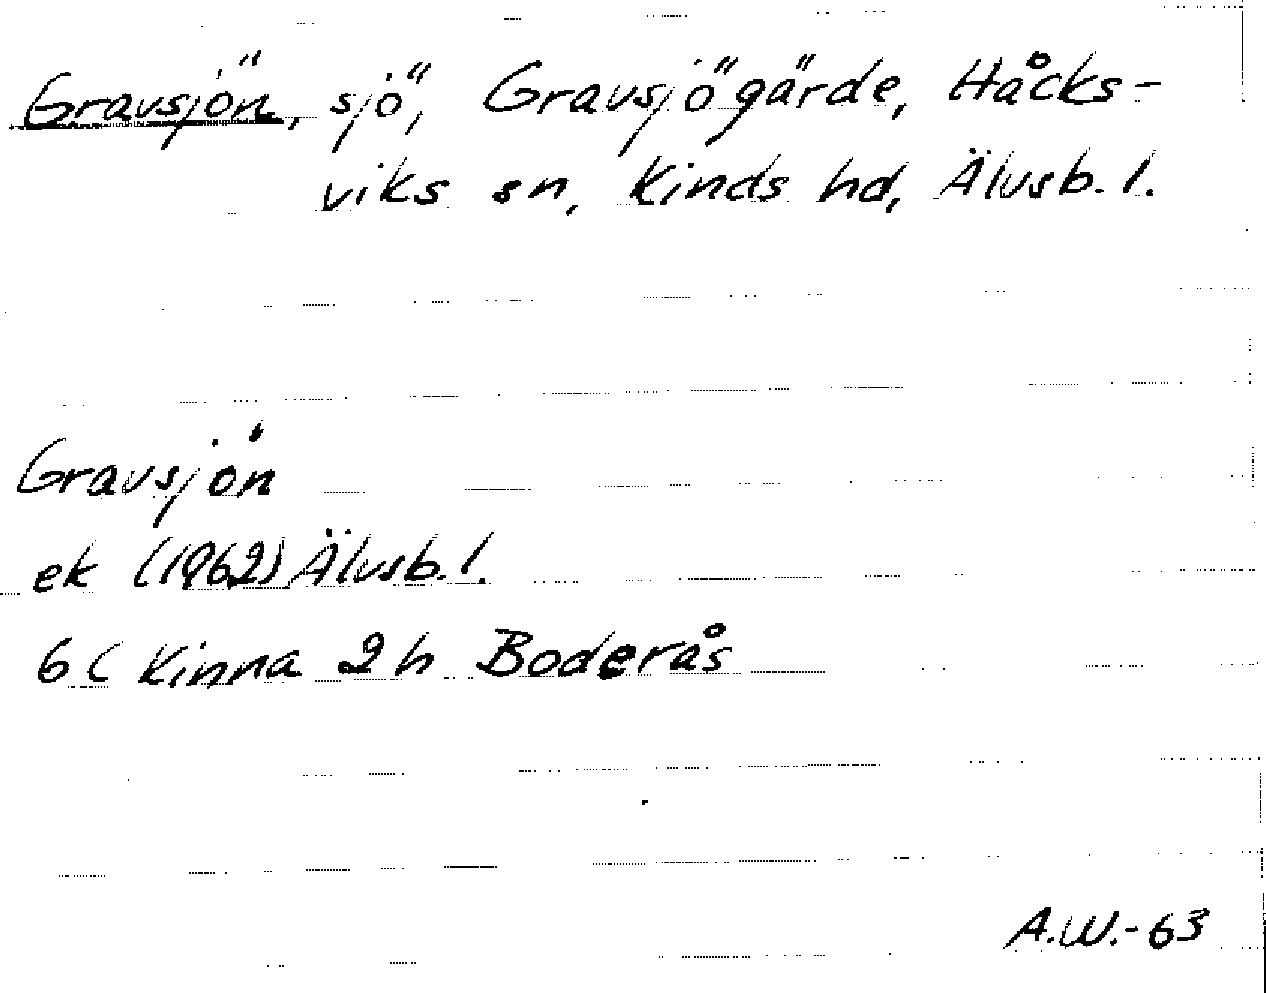 Gravsjön, sjö, Gravsjögärde, Håcks-
viks sn, Kinds hd, Älvsb. l.
Gravsjön
ek (1962) Älvsb. l.
6C Kinna 2h Boderås
A.W.-63